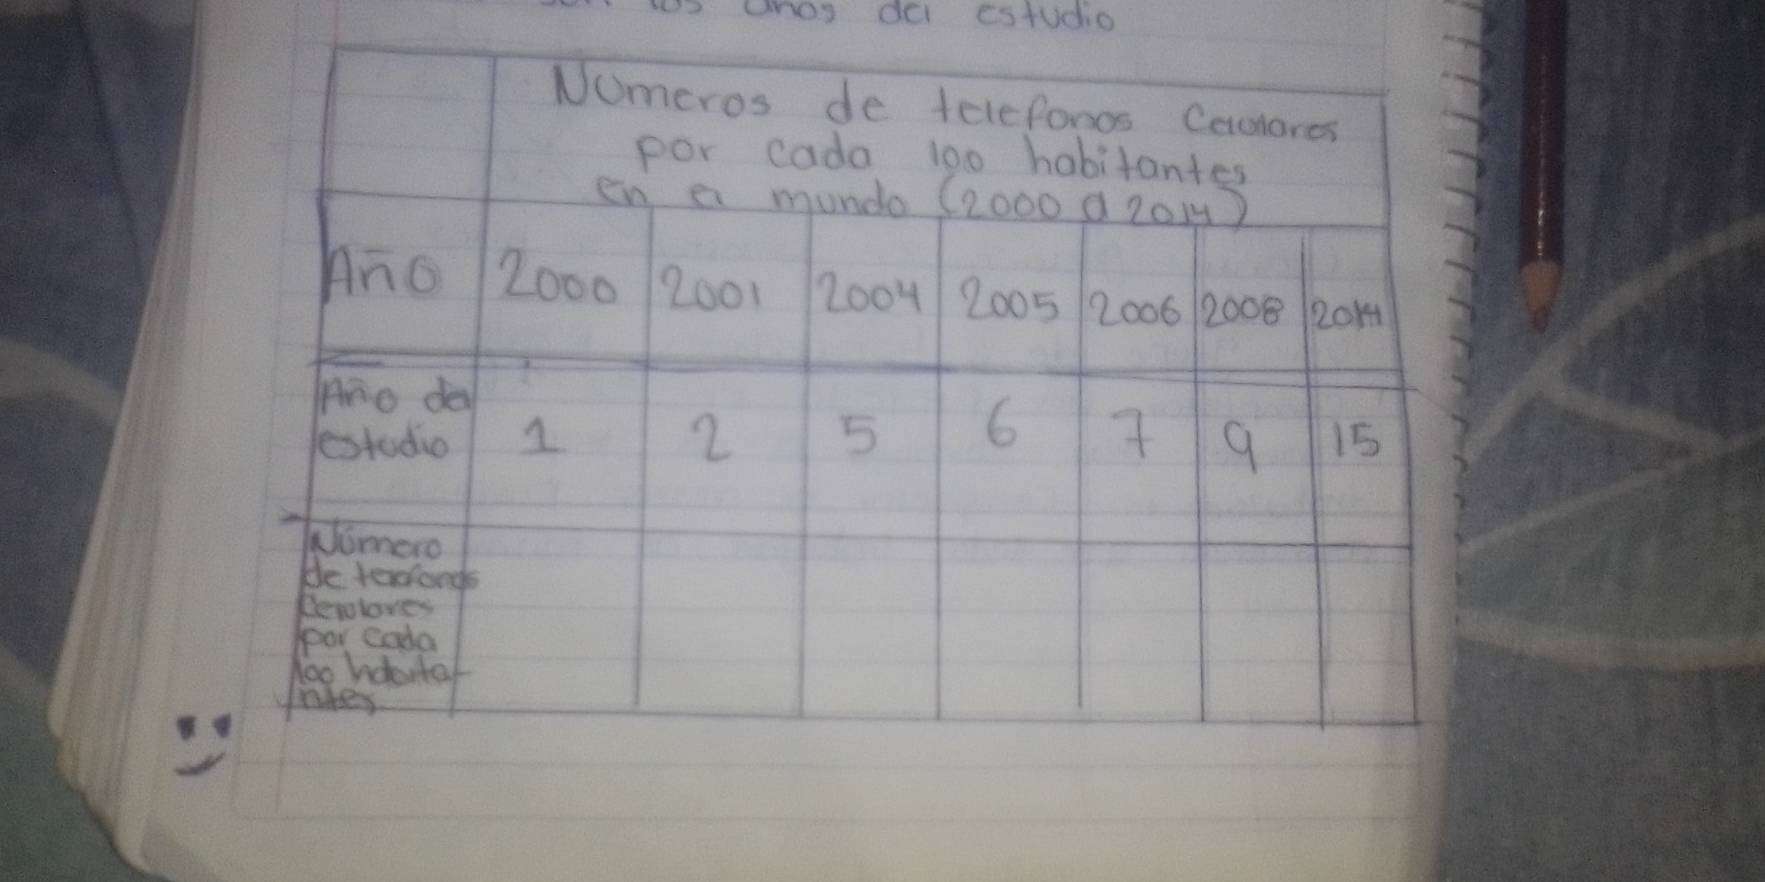 los años del estudio
Números de telefonos Celulares
por cada 100 habitantes
en el mundo (2000 a 2014)
Año 2000 2001 2004 2005 2006 2008 2014
Año del
estudio 1 2 5 6 7 9 15
Número
de telefonos
Celulares
por cada
100 habita
ntes